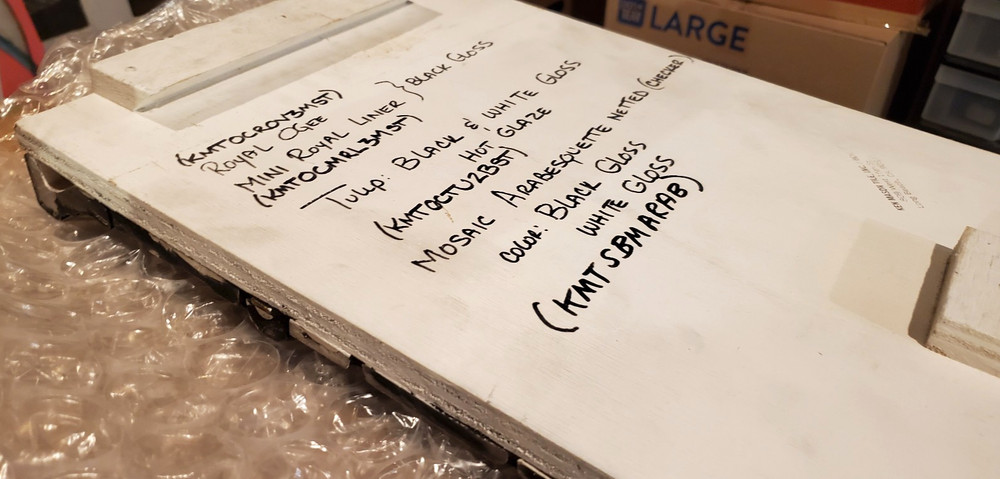 (KMTOCROV3MST)
ROYAL OGEE
MINI ROYAL LINER } BLACK GLOSS
(KMTOCMRL3MST)
TULIP: BLACK & WHITE GLOSS
HOT GLAZE
(KMTOCTU2BST)
MOSAIC ARABESQUETTE NETTED (CHECKER)
COLOR: BLACK GLOSS
WHITE GLOSS
(KMTSBMARAB)
KEN MASON TILE, INC.
LARGE